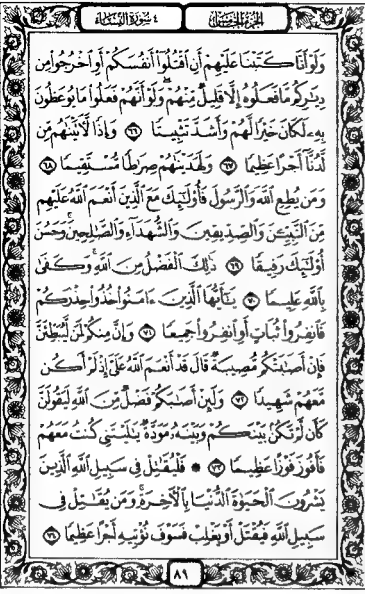 الجزء الخامس ٤ سورة النساء
وَلَوْ أَنَّا كَتَبْنَا عَلَيْهِمْ أَنِ ٱقْتُلُوٓا۟ أَنفُسَكُمْ أَوِ ٱخْرُجُوا۟ مِن
دِيَٰرِكُم مَّا فَعَلُوهُ إِلَّا قَلِيلٌ مِّنْهُمْ ۖ وَلَوْ أَنَّهُمْ فَعَلُوا۟ مَا يُوعَظُونَ
بِهِۦ لَكَانَ خَيْرًا لَّهُمْ وَأَشَدَّ تَثْبِيتًا ٦٦ وَإِذًا لَّءَاتَيْنَٰهُم مِّن
لَّدُنَّآ أَجْرًا عَظِيمًا ٦٧ وَلَهَدَيْنَٰهُمْ صِرَٰطًا مُّسْتَقِيمًا ٦٨
وَمَن يُطِعِ ٱللَّهَ وَٱلرَّسُولَ فَأُو۟لَٰٓئِكَ مَعَ ٱلَّذِينَ أَنْعَمَ ٱللَّهُ عَلَيْهِم
مِّنَ ٱلنَّبِيِّـۧنَ وَٱلصِّدِّيقِينَ وَٱلشُّهَدَآءِ وَٱلصَّٰلِحِينَ ۚ وَحَسُنَ
أُو۟لَٰٓئِكَ رَفِيقًا ٦٩ ذَٰلِكَ ٱلْفَضْلُ مِنَ ٱللَّهِ ۚ وَكَفَىٰ
بِٱللَّهِ عَلِيمًا ٧٠ يَٰٓأَيُّهَا ٱلَّذِينَ ءَامَنُوا۟ خُذُوا۟ حِذْرَكُمْ
فَٱنفِرُوا۟ ثُبَاتٍ أَوِ ٱنفِرُوا۟ جَمِيعًا ٧١ وَإِنَّ مِنكُمْ لَمَن لَّيُبَطِّئَنَّ
فَإِنْ أَصَٰبَتْكُم مُّصِيبَةٌ قَالَ قَدْ أَنْعَمَ ٱللَّهُ عَلَىَّ إِذْ لَمْ أَكُن
مَّعَهُمْ شَهِيدًا ٧٢ وَلَئِنْ أَصَٰبَكُمْ فَضْلٌ مِّنَ ٱللَّهِ لَيَقُولَنَّ
كَأَن لَّمْ تَكُنۢ بَيْنَكُمْ وَبَيْنَهُۥ مَوَدَّةٌ يَٰلَيْتَنِى كُنتُ مَعَهُمْ
فَأَفُوزَ فَوْزًا عَظِيمًا ٧٣ ۞ فَلْيُقَٰتِلْ فِى سَبِيلِ ٱللَّهِ ٱلَّذِينَ
يَشْرُونَ ٱلْحَيَوٰةَ ٱلدُّنْيَا بِٱلْءَاخِرَةِ ۚ وَمَن يُقَٰتِلْ فِى
سَبِيلِ ٱللَّهِ فَيُقْتَلْ أَوْ يَغْلِبْ فَسَوْفَ نُؤْتِيهِ أَجْرًا عَظِيمًا ٧٤
٨٩